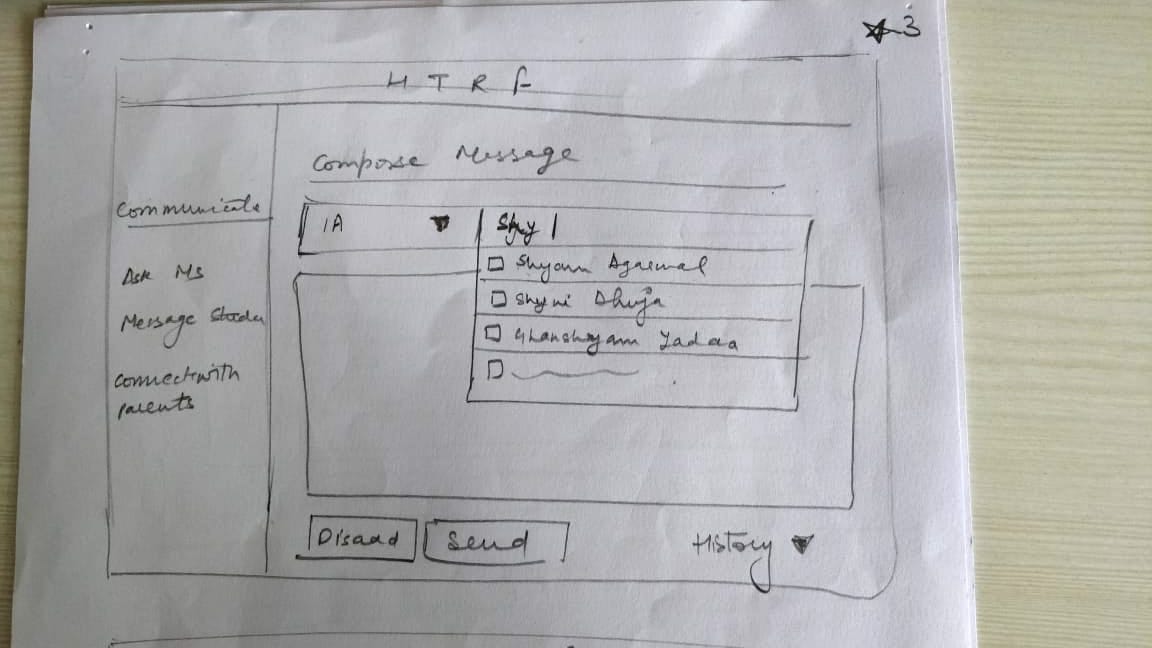 3
H T R F
Compose Message
Communicate
1A
Shy
Shyam Agarwal
Ask Ms
Shyni Ahuja
Message Studen
Ghanshyam Yadaa
Connect with
parents
Discard
Send
History